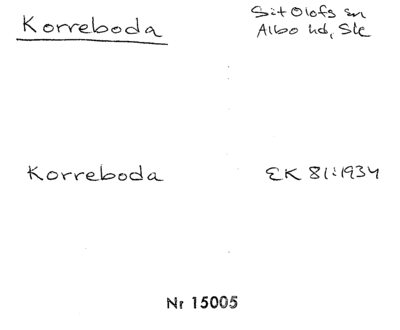 Korreboda
S:t Olofs sn
Albo hd, Sk
Korreboda
EK 81:1934
Nr 15005